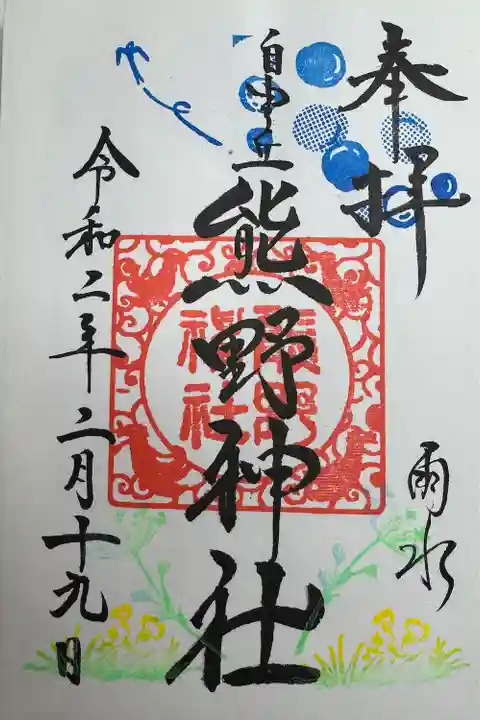 奉拝
雨水
自由丘
熊野神社
熊野
神社
令和二年二月十九日